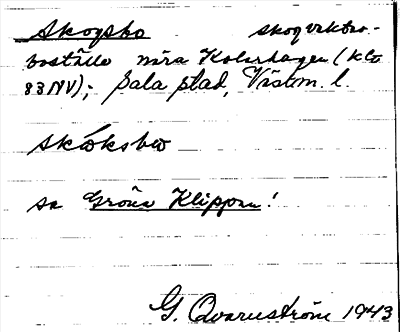 Skogsbo skogvaktar-
boställe nära Kolarhagen (kb
83NV); Sala stad, Västm. l.
skóksbω
se Gröna Klippan!
G. Qvarnström 1943